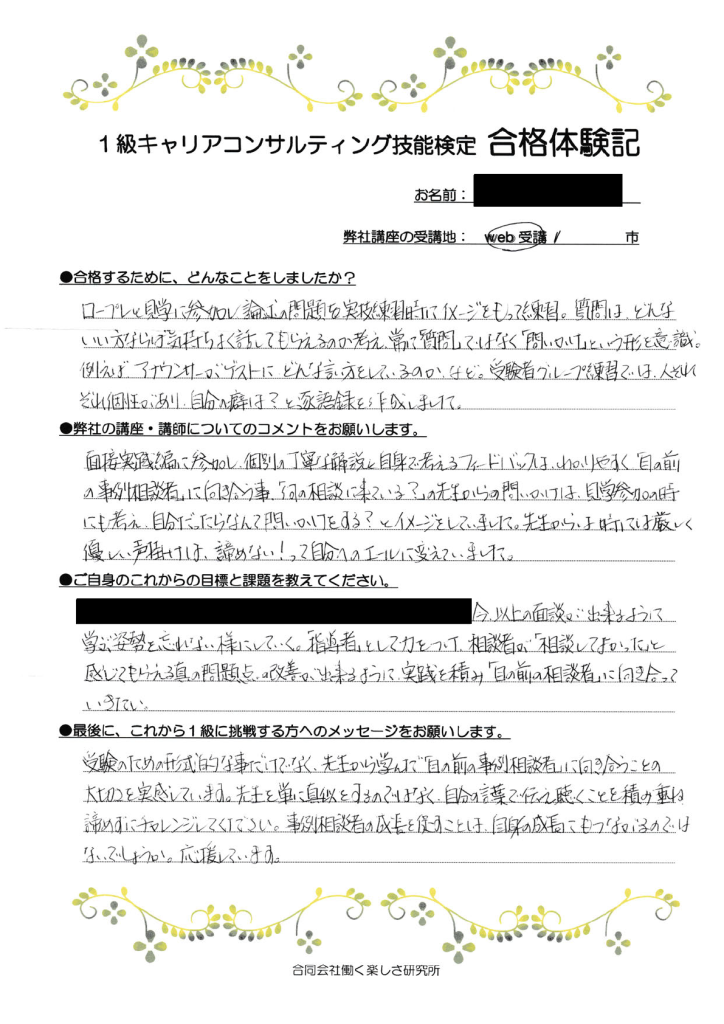 1級キャリアコンサルティング技能検定 合格体験記
お名前：
弊社講座の受講地： web 受講 / 市
●合格するために、どんなことをしましたか？
ロープレと見学に参加し論述の問題を実技練習時にイメージをもって練習。質問は、どんな
いい方ならば気持ちよく話してもらえるのか考え、常に「質問」ではなく「問いかけ」という形を意識。
例えば アナウンサーがゲストに どんな言い方をしているのか、など。受験者グループ練習では、人それ
ぞれ個性があり、自分の癖は？と逐語録を作成しました。
●弊社の講座・講師についてのコメントをお願いします。
面接実践編に参加し、個別の丁寧な解説と自身で考えるフィードバックは、わかりやすく「目の前
の事例相談者」に向き合う事、「何の相談に来ている？」の先生からの問いかけは、見学参加の時
にも考え、自分だったらなんて問いかけをする？とイメージをしていました。先生からは時には厳しく
優しい声掛けは、諦めない！って自分へのエールに変えていました。
●ご自身のこれからの目標と課題を教えてください。
今以上の面談が出来るように
学ぶ姿勢を忘れない様にしていく。「指導者」として力をつけ、相談者が「相談してよかった」と
感じてもらえる真の問題点の改善が出来るように、実践を積み「目の前の相談者」に向き合って
いきたい。
●最後に、これから1級に挑戦する方へのメッセージをお願いします。
受験のための形式的な事だけでなく、先生から学んだ「目の前の事例相談者」に向き合うことの
大切さを実感しています。先生を単に真似をするのではなく、自分の言葉で伝え聴くことを積み重ね
諦めずにチャレンジしてください。事例相談者の成長を促すことは、自身の成長にもつながるのでは
ないでしょうか。応援しています。
合同会社働く楽しさ研究所